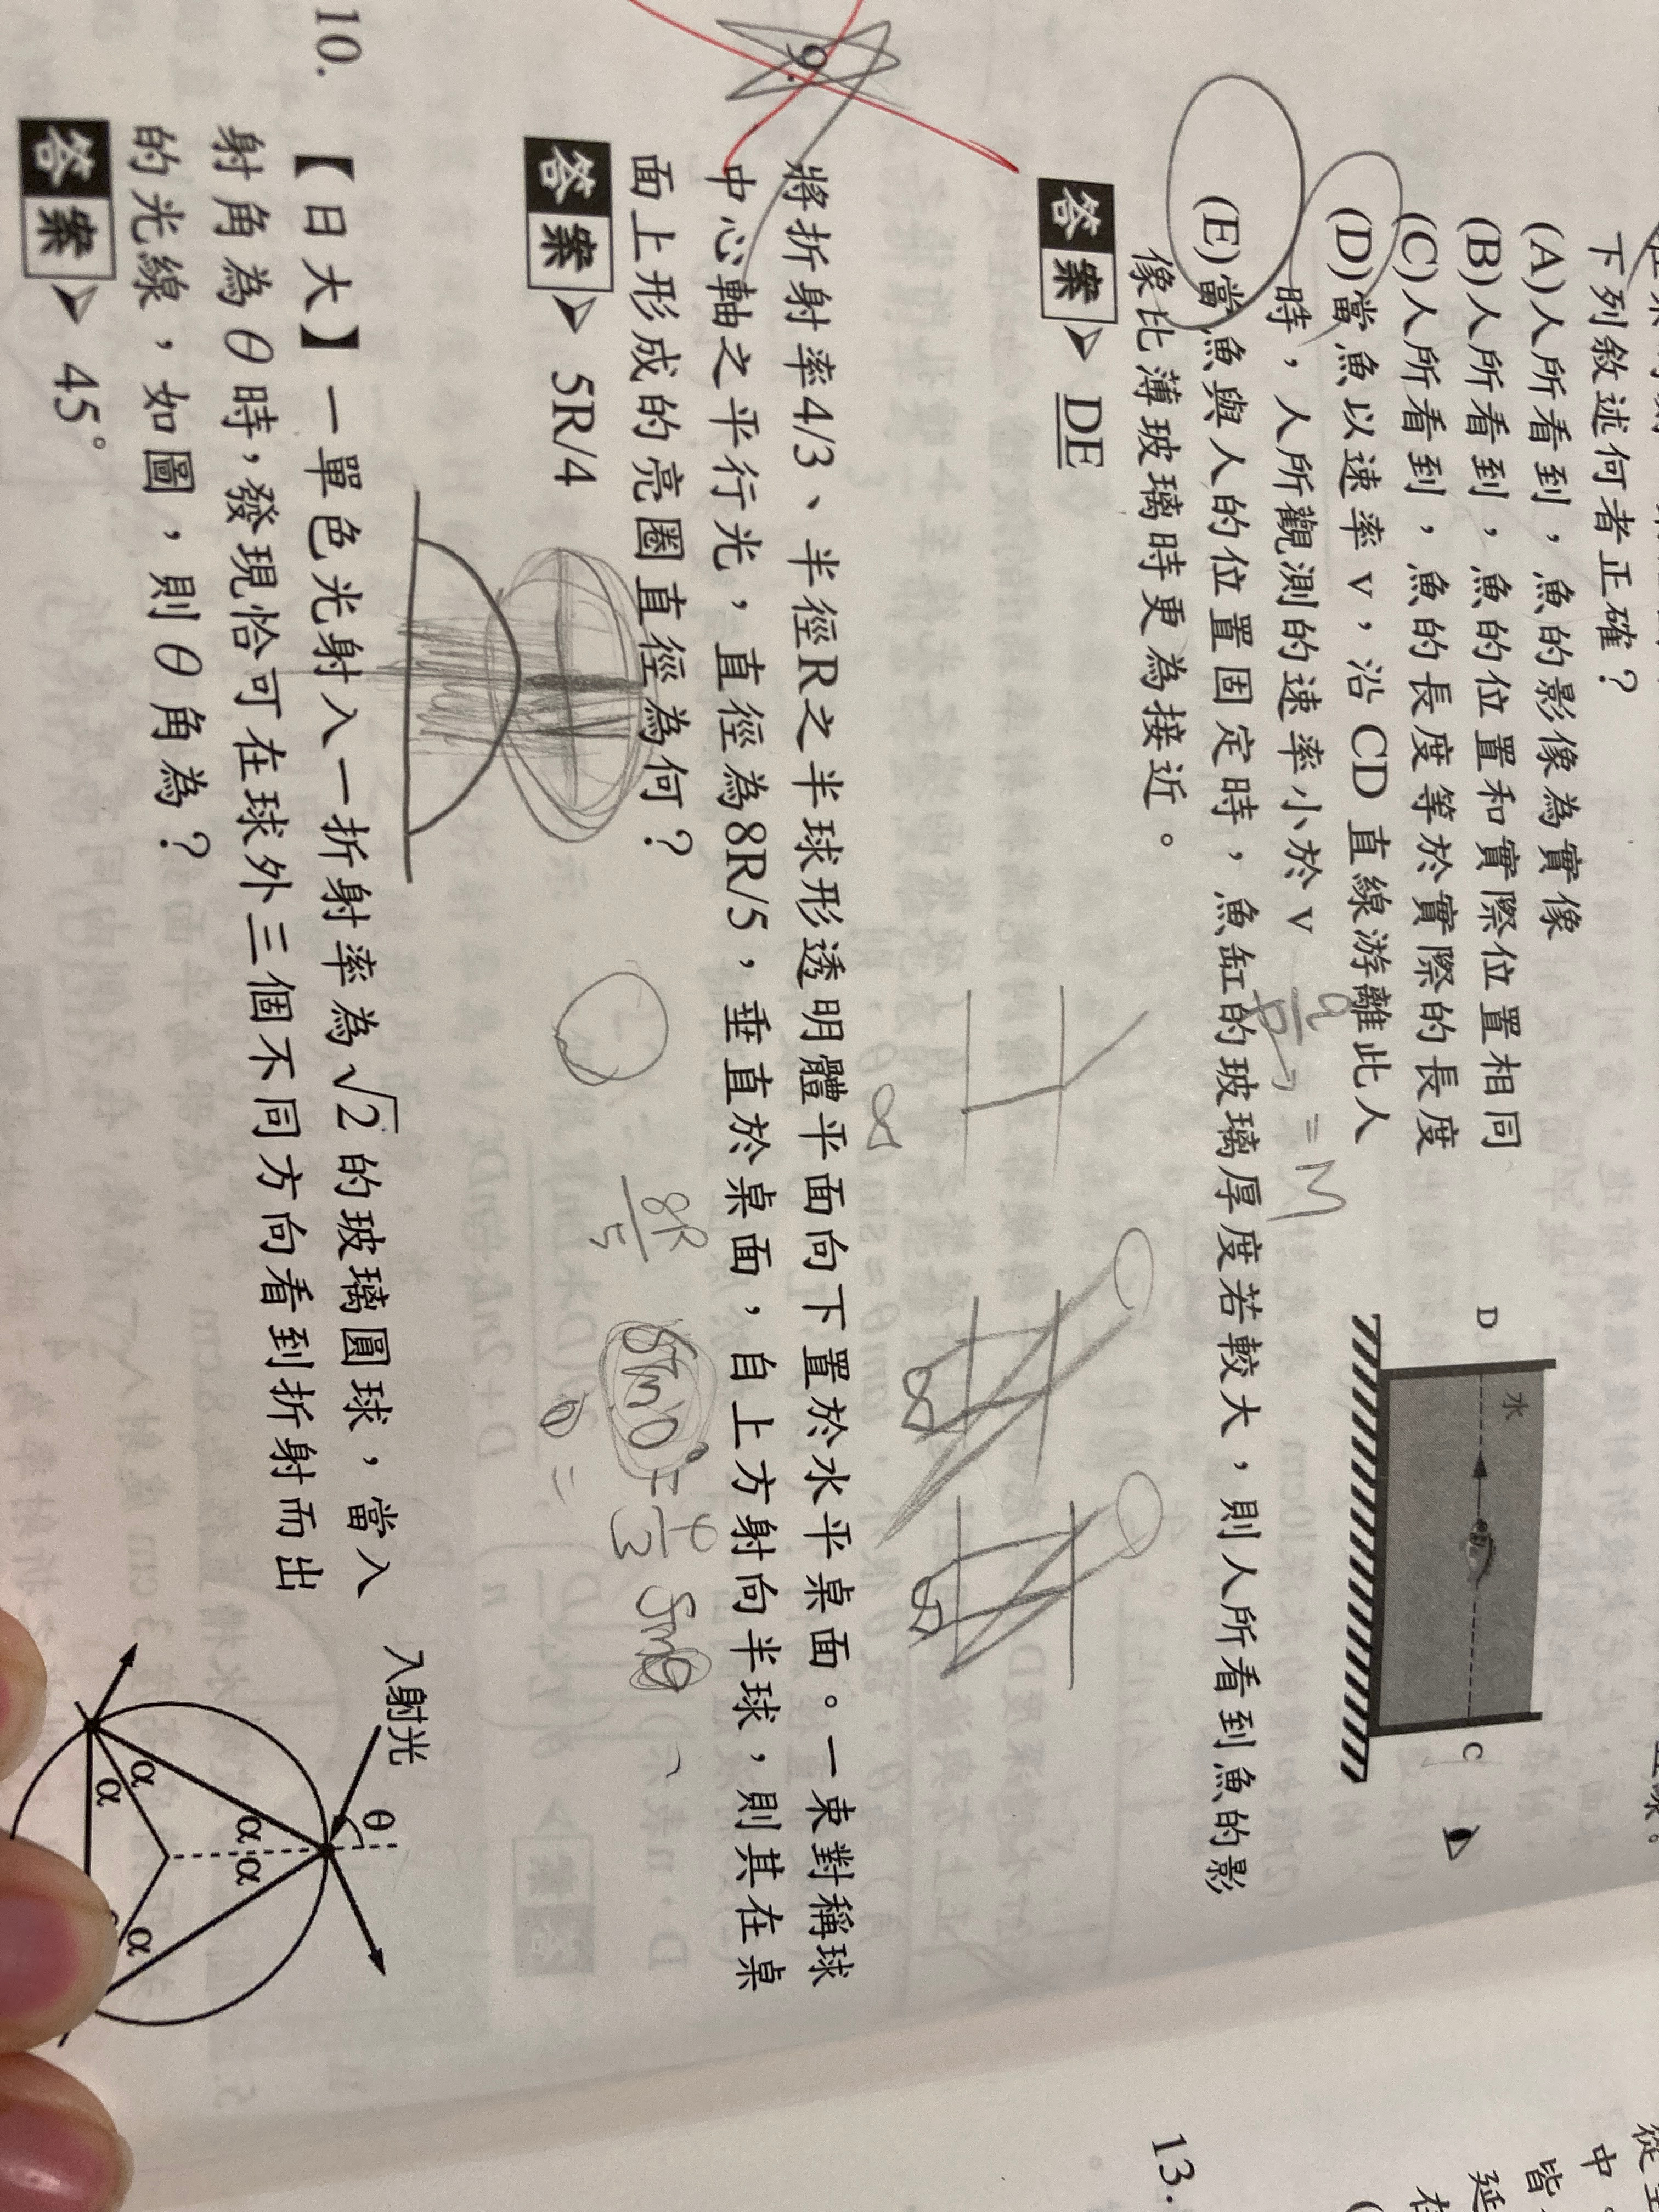 下列敘述何者正確？
(A)人所看到，魚的影像為實像
(B)人所看到，魚的位置和實際位置相同
(C)人所看到，魚的長度等於實際的長度
(D)當魚以速率v，沿CD直線游離此人
時，人所觀測的速率小於v
(E)當魚與人的位置固定時，魚缸的玻璃厚度若較大，則人所看到魚的影
像比薄玻璃時更為接近。
答案 DE
D
水
C
9.
將折射率4/3、半徑R之半球形透明體平面向下置於水平桌面。一束對稱球
中心軸之平行光，直徑為8R/5，垂直於桌面，自上方射向半球，則其在桌
面上形成的亮圈直徑為何？
答案 5R/4
α
8R/5
sinθ
4/3
sinθ
θ =
10.
【日大】一單色光射入一折射率為√2的玻璃圓球，當入
射角為θ時，發現恰可在球外三個不同方向看到折射而出
的光線，如圖，則θ角為？
答案 45°
入射光
θ
α
α
α
α
α
13.